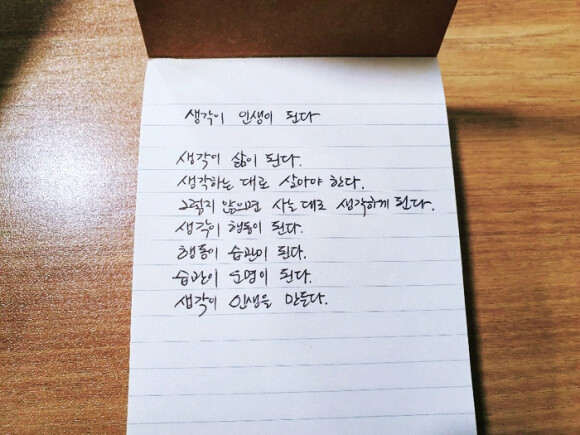 생각이 인생이 된다
생각이 삶이 된다.
생각하는 대로 살아야 한다.
그렇지 않으면 사는 대로 생각하게 된다.
생각이 행동이 된다.
행동이 습관이 된다.
습관이 운명이 된다.
생각이 인생을 만든다.